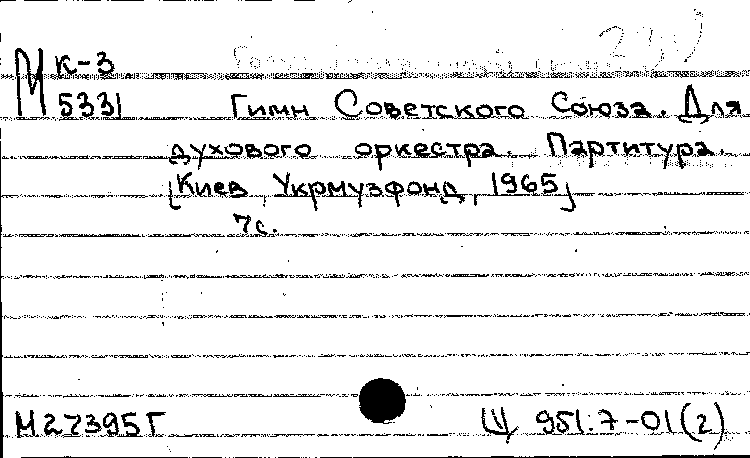 М К-3
5331
Гимн Советского Союза. Для
духового оркестра. Партитура.
[Киев, Укрмузфонд, 1965]
7с.
М27395Г
Щ 951.7-01(2)